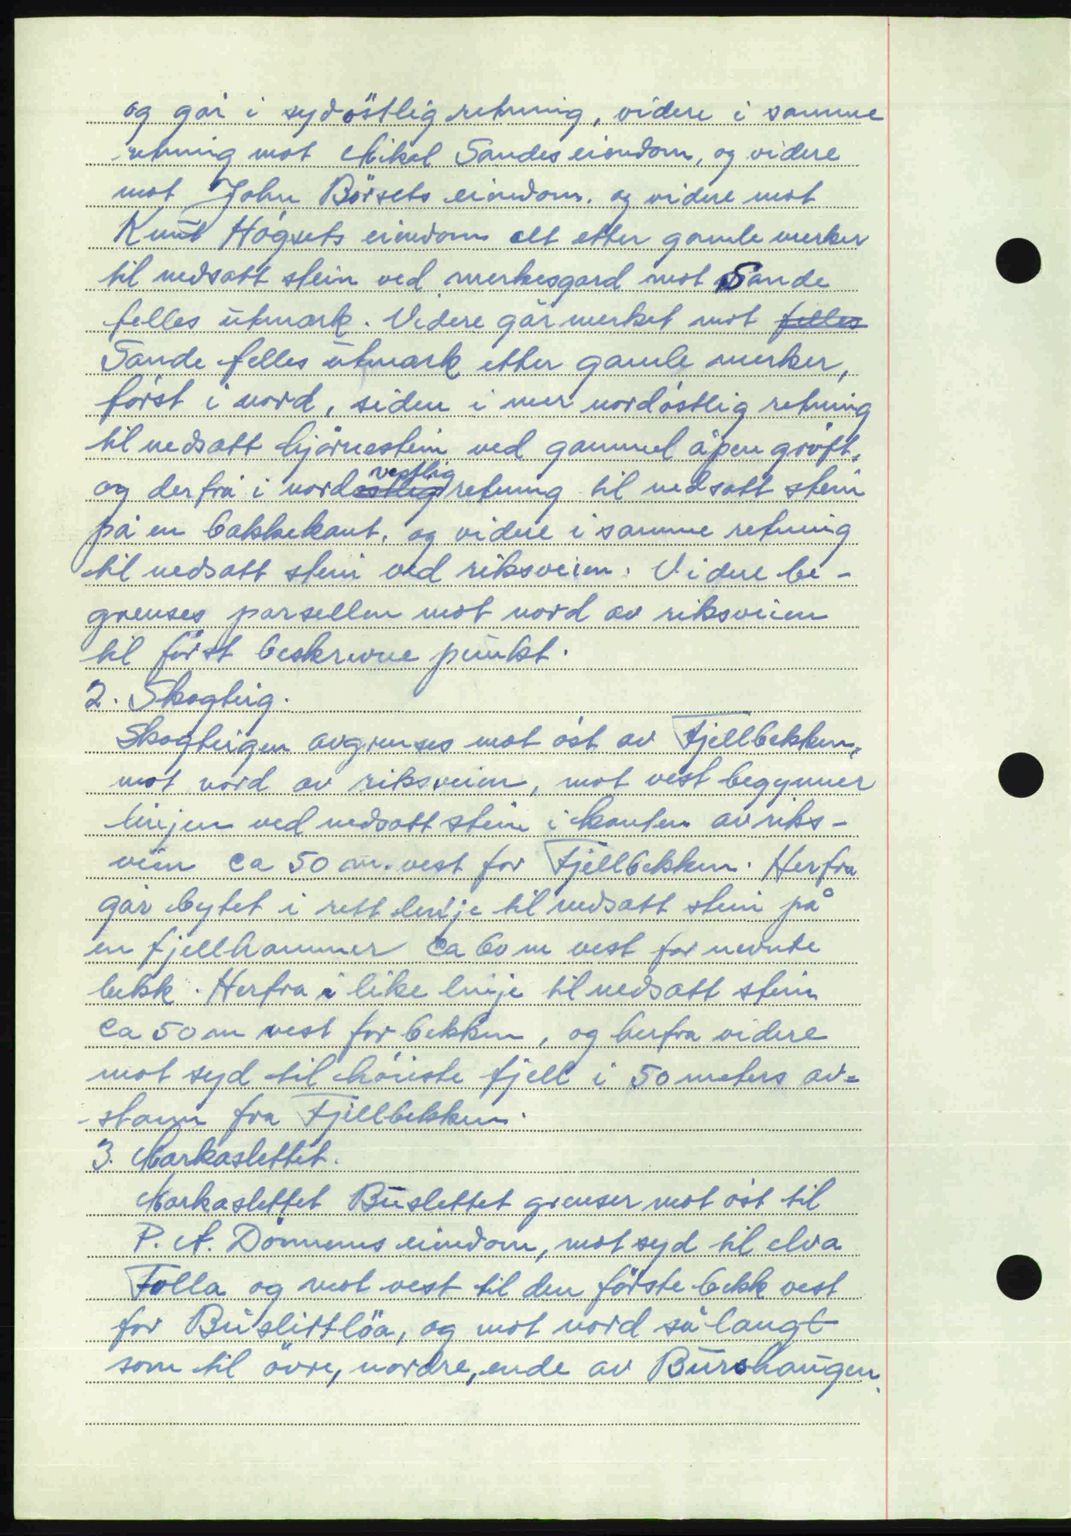 og går i sydöstlig retning, videre i samme
retning mot Mikal Sandes eiendom, og videre
mot John Börsets eiendom, og videre mot
Knut Högsets eiendom alt etter gamle merker
til nedsatt stein ved merkesgard mot Sande
felles utmark. Videre går merket mot felles
Sande felles utmark etter gamle merker,
først i nord, siden i mer nordöstlig retning
til nedsatt hjörnestein ved gammel åpen gröft,
vestlig
og derfra i nordöstlig retning til nedsatt stein
på en bakkekant, og videre i samme retning
til nedsatt stein ved riksveien. Videre be-
grenses parsellen mot nord av riksveien
til först beskrevne punkt.
2. Skogteig.
Skogteigen avgrenses mot öst av Fjellbekken,
mot nord av riksveien, mot vest begynner
linjen ved nedsatt stein i kanten av riks-
veien ca 50 m. vest for Fjellbekken. Herfra
går bytet i rett linje til nedsatt stein på
en fjellhammer ca 60 m vest for nevnte
bekk. Herfra i like linje til nedsatt stein
ca 50 m vest for bekken, og herfra videre
mot syd til höieste fjell i 50 meters av=
-stann fra Fjellbekken.
3. Markaslettet.
Markaslettet Buslettet grenser mot öst til
P. A. Dönnems eiendom, mot syd til elva
Folla og mot vest til den förste bekk vest
for Buslettlöa, og mot nord så langt
som til övre, nordre, ende av Burshaugen.